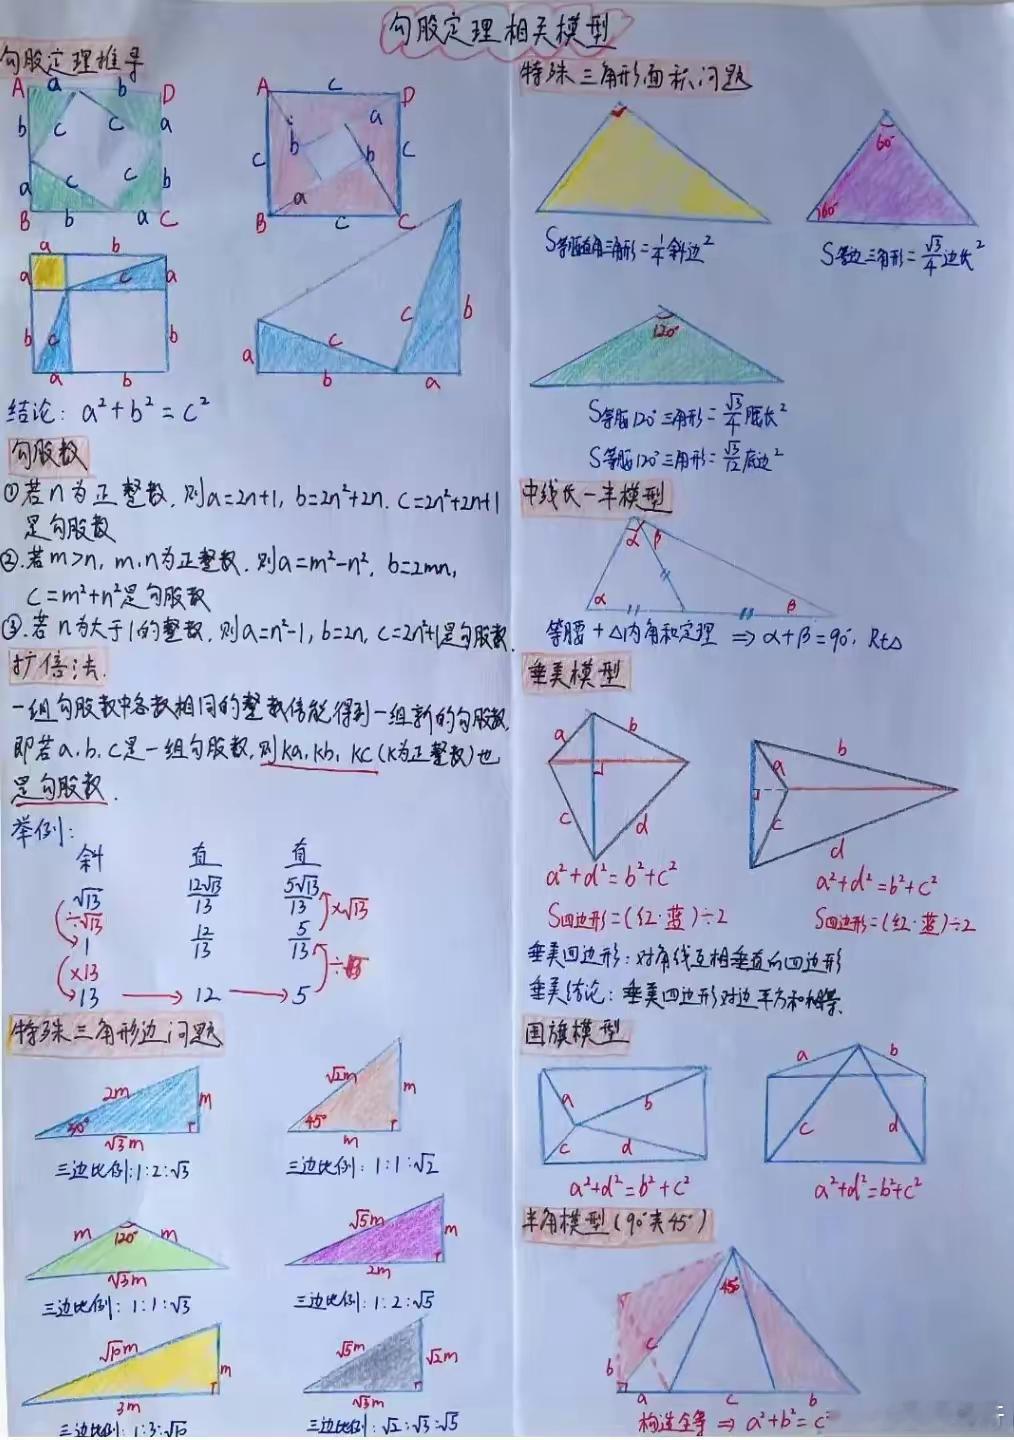 勾股定理相关模型
勾股定理推导
A a b D
b c c a
a c c b
B b a C
A c D
a
c b b c
a
B c C
a b
a c a
b c b
a b
c c b
a
b a
结论: a²+b²=c²
勾股数
①若n为正整数,则a=2n+1, b=2n²+2n. c=2n²+2n+1
是勾股数
②.若m>n, m.n为正整数.则a=m²-n², b=2mn,
c=m²+n²是勾股数
③.若n为大于1的整数,则a=n²-1, b=2n, c=2n²+1是勾股数.
扩倍法.
一组勾股数中各数相同的整数倍能得到一组新的勾股数,
即若a.b.c是一组勾股数,则ka,kb,kc(k为正整数)也
是勾股数.
举例:
斜 直 直
√13 12√13/13 5√13/13
÷√13 ×√13
1 12/13 5/13
×13
13 12 5
特殊三角形边问题
2m m
30°
√3m
三边比例:1:2:√3
√2m m
45°
m
三边比例: 1:1:√2
m 120° m
√3m
三边比例: 1:1:√3
√5m m
2m
三边比例: 1:2:√5
√10m m
3m
三边比例: 1:3:√10
√5m √2m
√3m
三边比例: √2:√3:√5
特殊三角形面积问题
S等腰直角三角形=1/4斜边²
60°
60°
S等边三角形=√3/4边长²
120°
S等腰120°三角形=√3/4腰长²
S等腰120°三角形=√3/12底边²
中线长一半模型
α β
α β
等腰+△内角和定理 ⇒ α+β=90°, Rt△
垂美模型
a b
c d
a²+d²=b²+c²
S四边形=(红·蓝)÷2
b
a
c
d
a²+d²=b²+c²
S四边形=(红·蓝)÷2
垂美四边形:对角线互相垂直的四边形
垂美结论:垂美四边形对边平方和相等.
国旗模型
a b
c d
a²+d²=b²+c²
a b
c d
a²+d²=b²+c²
半角模型(90°夹45°)
45°
b c
a c b
构造全等 ⇒ a²+b²=c²